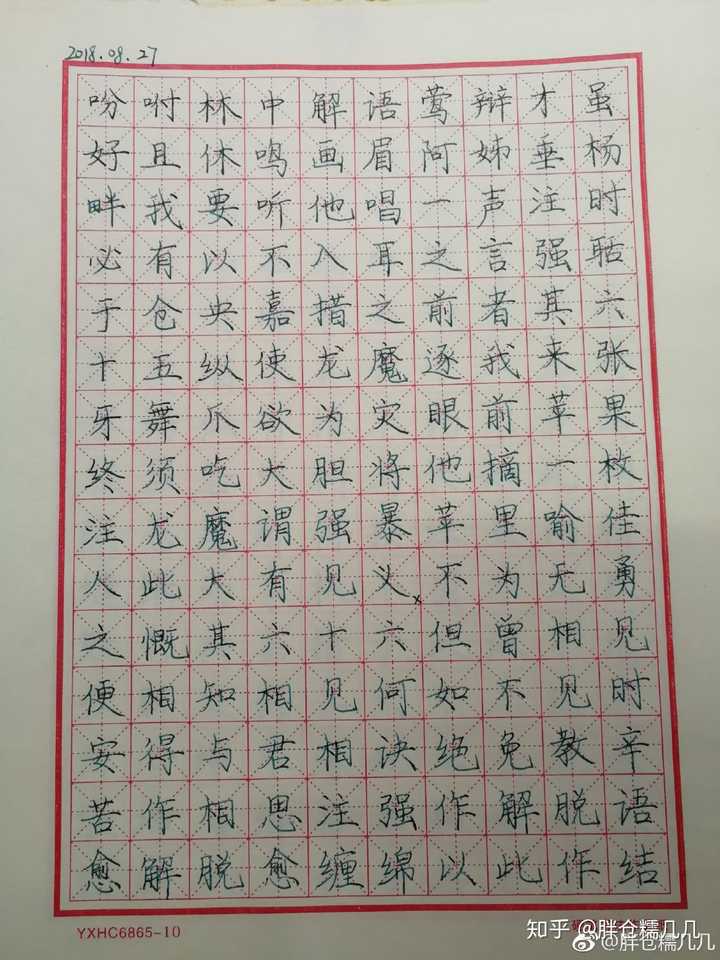 2018.08.27
吩咐林中解语莺辩才虽
好且休鸣画眉阿姊垂杨
畔我要听他唱一声注时
必有以不入耳之言强聒
于仓央嘉措之前者其六
十五纵使龙魔逐我来张
牙舞爪欲为灾眼前苹果
终须吃大胆将他摘一枚
注龙魔谓强暴苹里喻佳
人此大有见义不为无勇
之慨其六十六但曾相见
便相知相见何如不见时
安得与君相诀绝免教辛
苦作相思注强作解脱语
愈解脱愈缠绵以此作结
YXHC6865-10
知乎 @胖仓糯几几
@胖仓糯几几